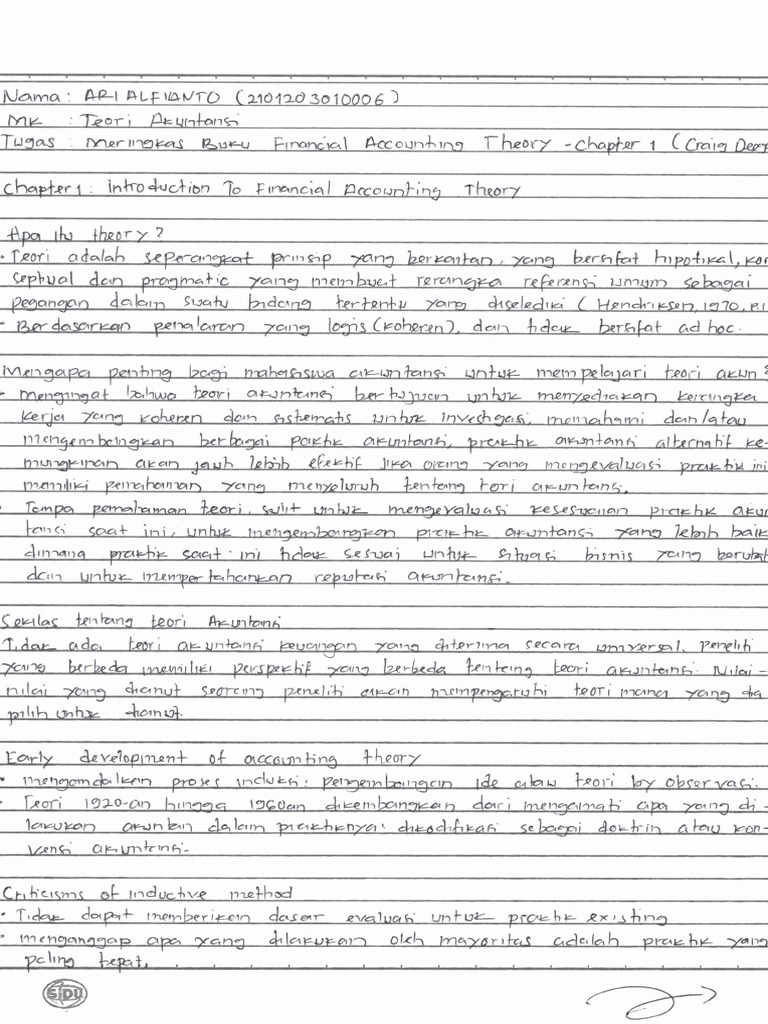 Nama : ARI ALFIANTO (2101203010006)
MK : Teori Akuntansi
Tugas : Meringkas Buku Financial Accounting Theory - Chapter 1 (Craig Deeg
Chapter 1 : introduction To Financial Accounting Theory
Apa itu theory ?
• Teori adalah seperangkat prinsip yang berkaitan, yang bersifat hipotikal, kon
septual dan pragmatic yang membuat rerangka referensi umum sebagai
pegangan dalam suatu bidang tertentu yang diselediki (Hendriksen, 1970, p.1
• Berdasarkan penalaran yang logis (koheren), dan tidak bersifat ad hoc.
Mengapa penting bagi mahasiswa akuntansi untuk mempelajari teori akun ?
• mengingat bahwa teori akuntansi bertujuan untuk menyediakan kerangka
kerja yang koheren dan sistematis untuk investigasi, memahami dan/atau
mengembangkan berbagai paktik akuntansi, praktik akuntansi alternatif ke-
mungkinan akan jauh lebih efektif jika orang yang mengevaluasi praktik ini
memiliki pemahaman yang menyeluruh tentang tori akuntansi.
• Tampa pemahaman teori, sulit untuk mengevaluasi kesesuaian praktik akun
tansi saat ini, untuk mengembangkan praktik akuntansi yang lebih baik
dimana praktik saat ini tidak sesuai untuk situasi bisnis yang berubah
dan untuk mempertahankan reputasi akuntansi.
Sekilas tentang teori Akuntansi
Tidak ada teori akuntansi keuangan yang diterima secara universal. Peneliti
yang berbeda memiliki perspektif yang berbeda tentang teori akuntansi. Nilai-
nilai yang dianut seorang peneliti akan mempengaruhi teori mana yang dia
pilih untuk dianut.
Early development of accounting theory
• mengandalkan proses induksi : pengembangan ide atau teori by observasi.
• Teori 1920-an hingga 1960an dikembangkan dari mengamati apa yang di-
lakukan akuntan dalam praktiknya; dikodifikasi sebagai doktrin atau kon-
vensi akuntansi.
Criticisms of inductive method
• Tidak dapat memberikan dasar evaluasi untuk praktik existing
• menganggap apa yang dilakukan oleh mayoritas adalah praktik yang
paling tepat.
SIDU